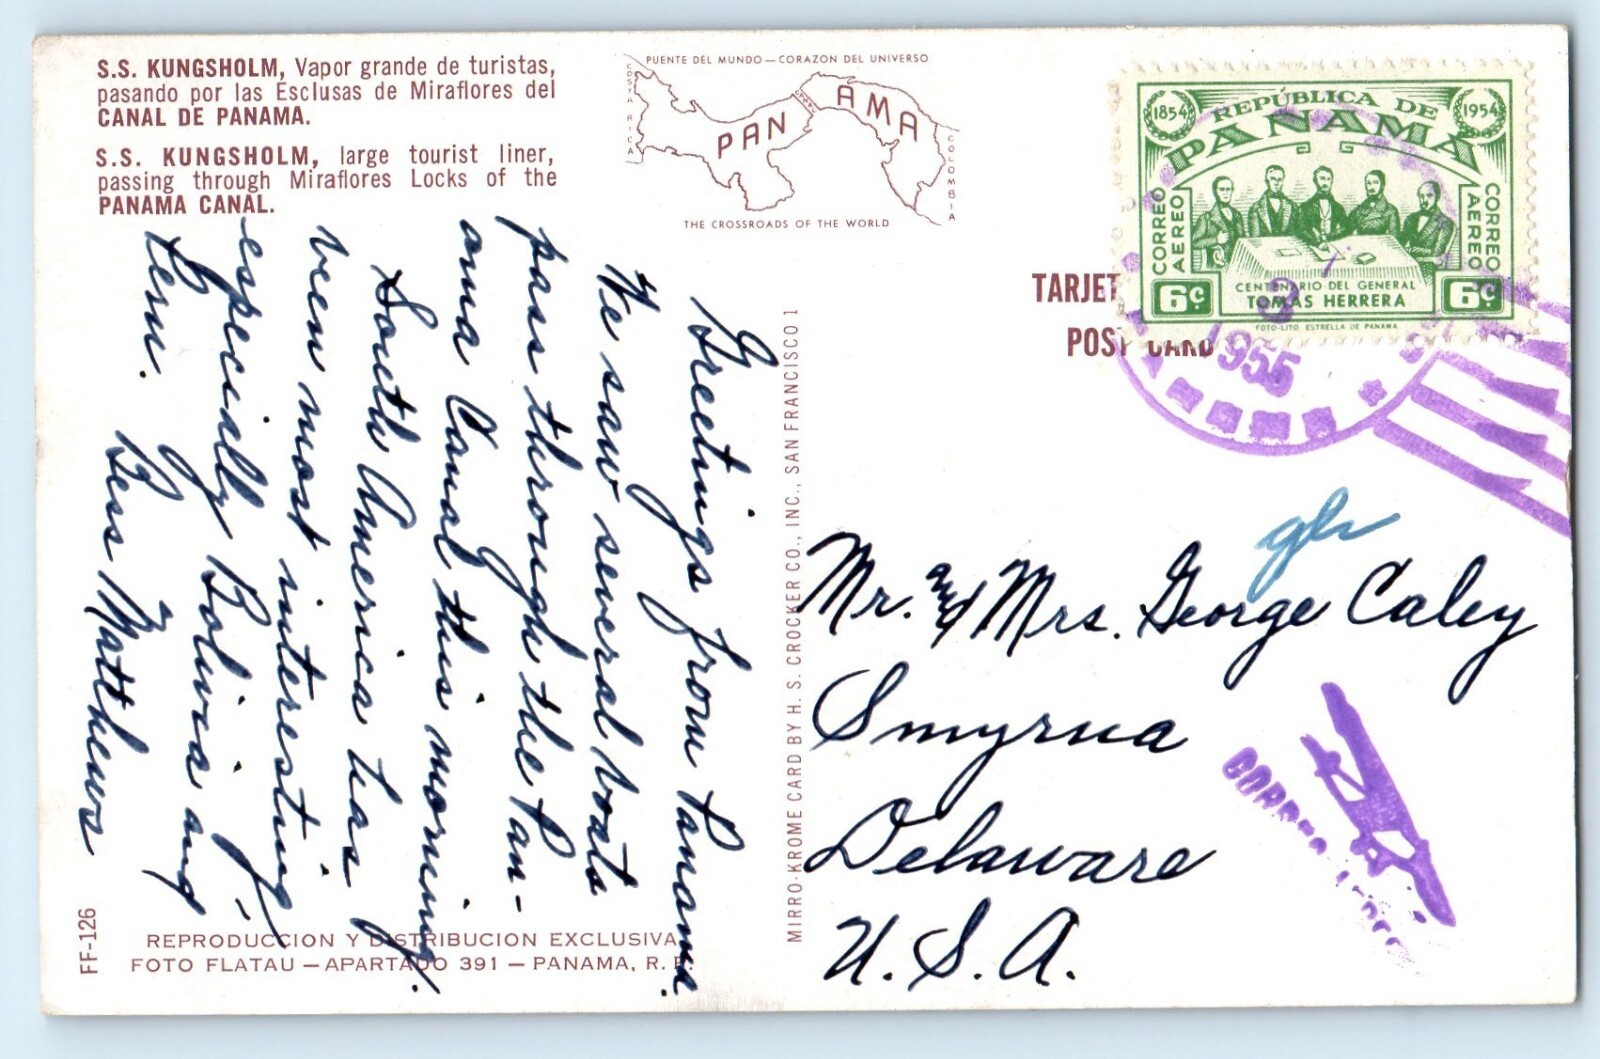 S.S. KUNGSHOLM, Vapor grande de turistas,
pasando por las Esclusas de Miraflores del
CANAL DE PANAMA.
S.S. KUNGSHOLM, large tourist liner,
passing through Miraflores Locks of the
PANAMA CANAL.
PUENTE DEL MUNDO—CORAZON DEL UNIVERSO
COSTA RICA
PANAMA
COLOMBIA
THE CROSSROADS OF THE WORLD
TARJET
POST CARD
1854
REPÚBLICA DE
1954
PANAMA
CORREO
AEREO
CORREO
AEREO
CENTENARIO DEL GENERAL
TOMAS HERRERA
6c
6c
FOTO-LITO. ESTRELLA DE PANAMA
3
1955
Greetings from Panama.
We saw several boats
pass through the Pan-
ama Canal this morning.
South America has
been most interesting,
especially Bolivia and
Peru.
Bess Matthews
MIRRO-KROME CARD BY H. S. CROCKER CO., INC., SAN FRANCISCO 1
Mr. and Mrs. George Caley
Smyrna
Delaware
U.S.A.
CORREO
FF-126
REPRODUCCION Y DISTRIBUCION EXCLUSIVA
FOTO FLATAU — APARTADO 391 — PANAMA, R. P.